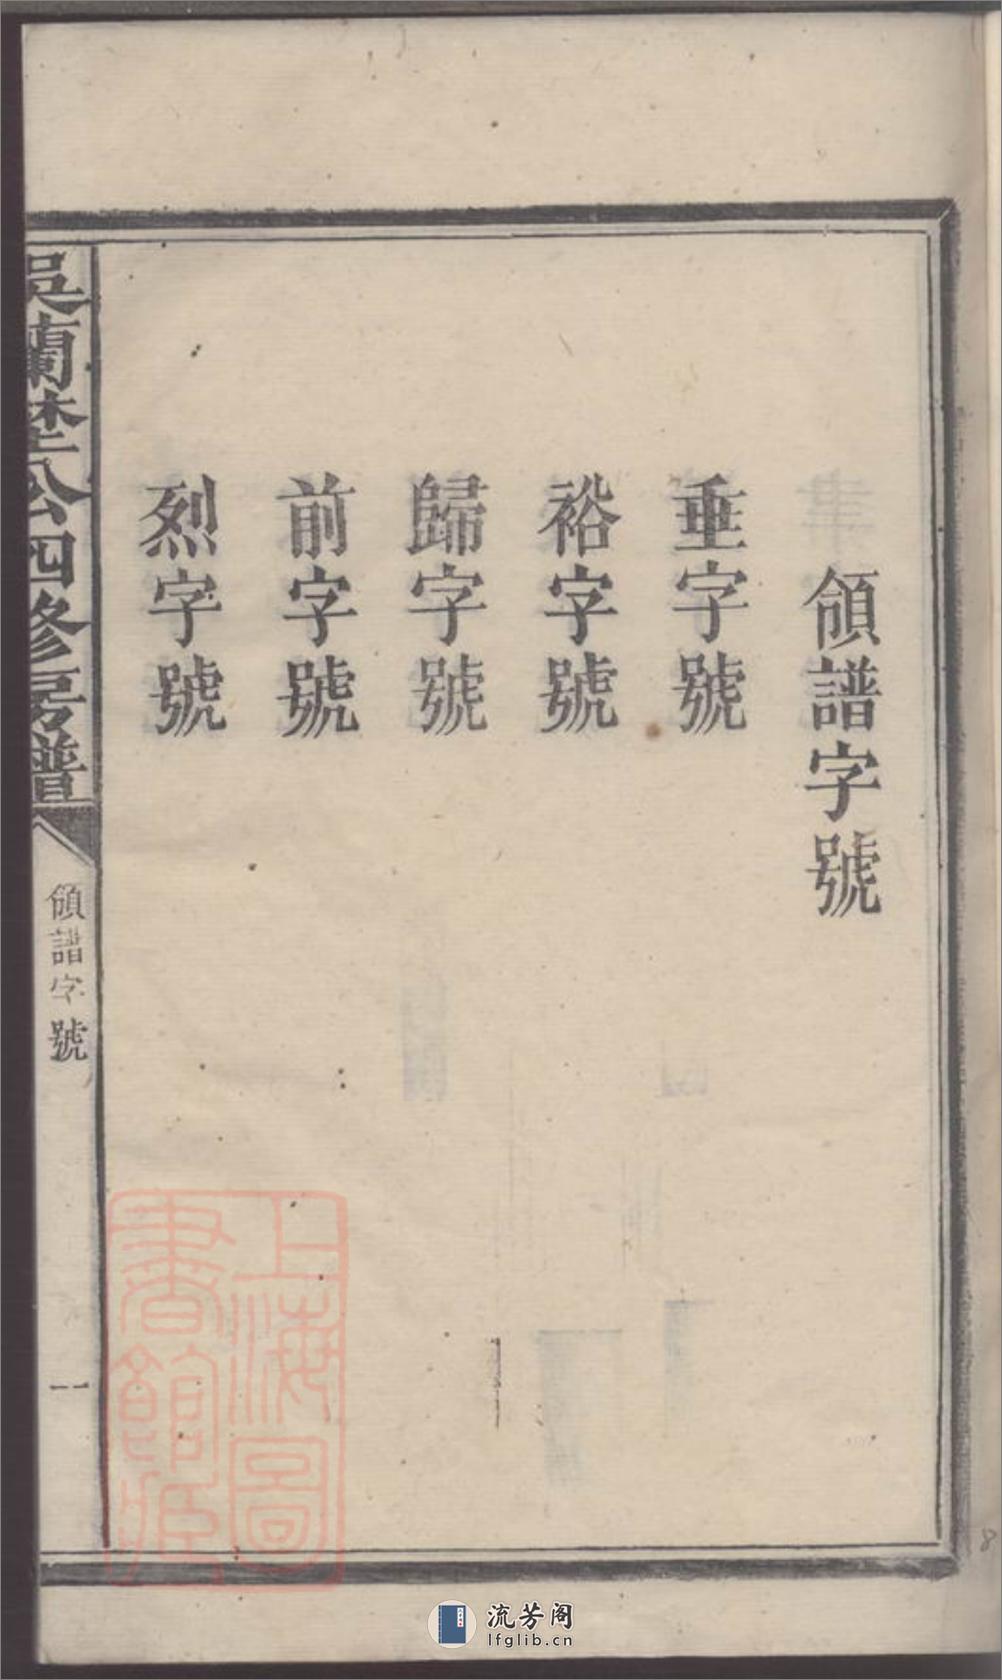 領譜字號
垂字號
裕字號
歸字號
前字號
烈字號
吳蘭埜公四修房譜
領譜字號
一
上海圖
書館藏
流芳阁
lfglib.cn
8